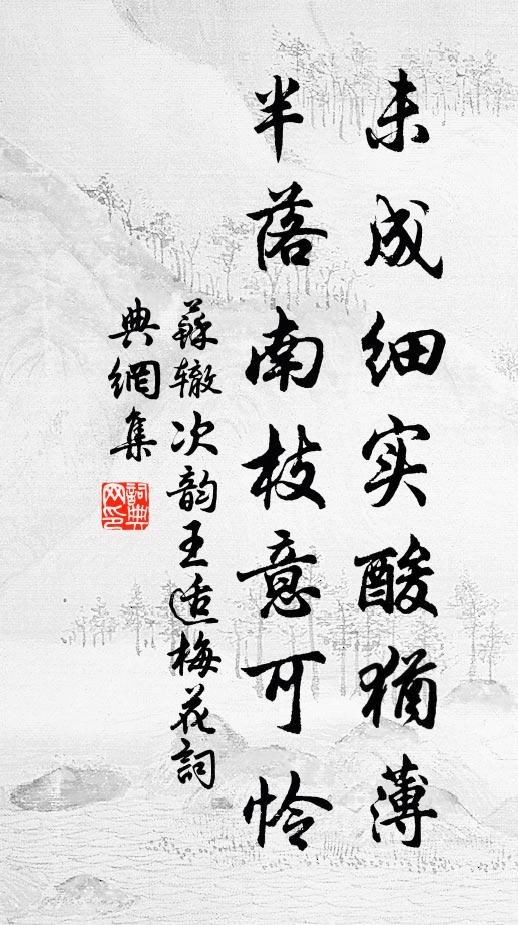 未成细实酸犹薄
半落南枝意可怜
蘇辙次韵王适梅花詞
典網集
詞典
网印